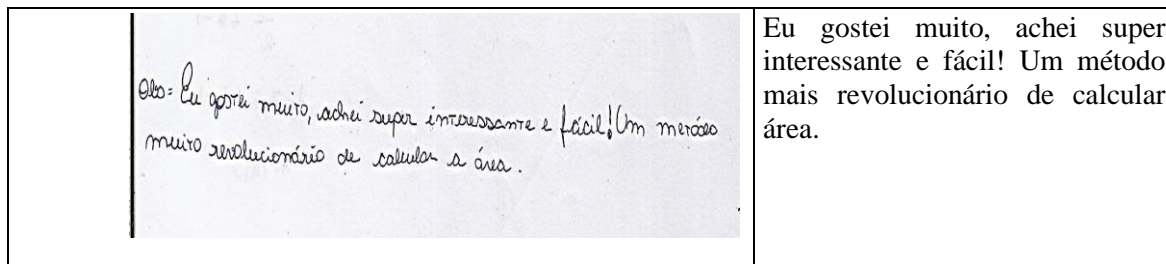 Obs= Eu gostei muito, achei super interessante e fácil! Um método
muito revolucionário de calcular a área.
Eu gostei muito, achei super
interessante e fácil! Um método
mais revolucionário de calcular
área.